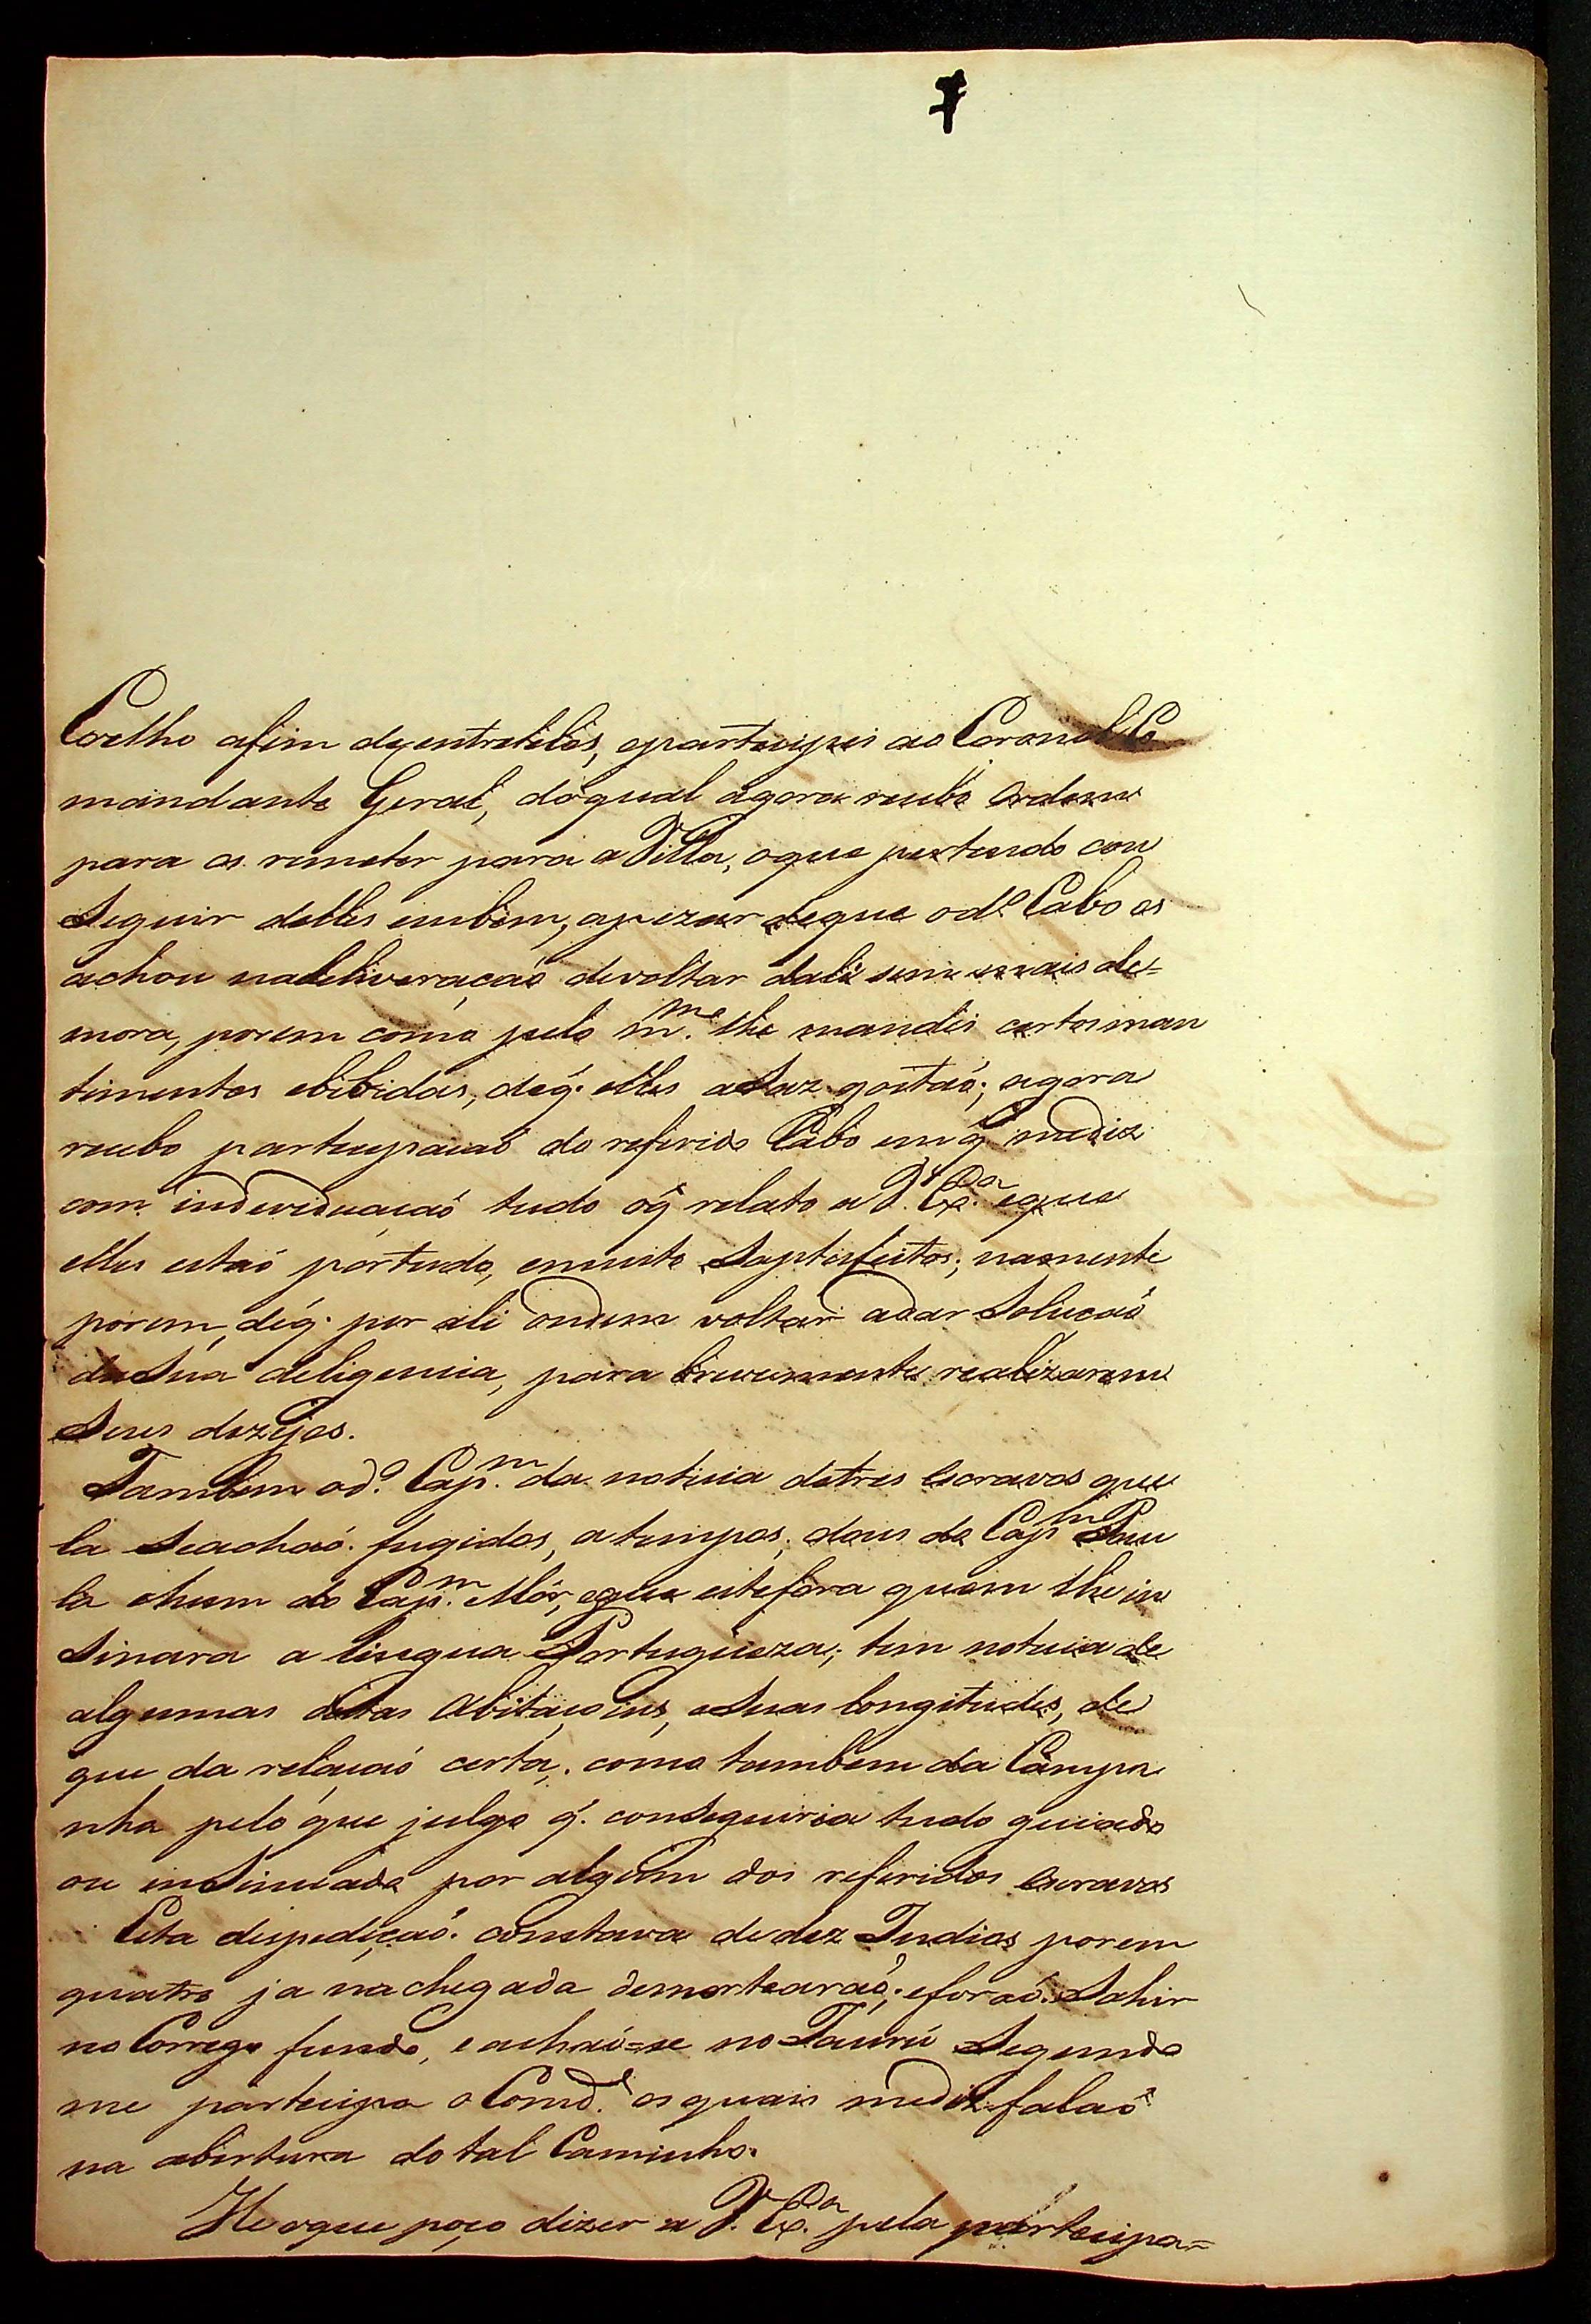 7
Coelho afim de entretelos, eparticipei ao Coronel Co
mandante Geral, doqual agora recebo Ordem
para os remeter para a Villa, oque pertendo con
Seguir delles embem, apezar deque od.º Cabo os
achou nadeliveraçaõ devoltar dali sem mais de=
mora, porem como pelo m.mo lhe mandei certos man
timentos ebibidas, deq̃. elles aSaz gostaõ; agora
recebo participaçaõ do referido Cabo em q̃ mediz
com individuaçaõ tudo oq̃ relato a V. Ex.ca eque
elles estaõ portudo, emuito Saptisfeitos; namente
porem, deq̃. por ali ondem voltar adar Soluçaõ
daSua deligencia, para brevemente realizarem
Seus dezejos.
Tambem od.º Cap.m da noticia detres escravos que
la Seachaõ fugidos, atempos; dous do Cap.m Pau
la ehum do Cap.m Mór, eque estefora quem lhe in
Sinara a lingua Portugueza; tem noticia de
algumas destas Abitaçoins, eSuas longitudes, de
que da relaçaõ certa; como tambem da Campa
nha pelo que julgo q̃. conSeguiria tudo guiado
ou inSinuado por algum dos referidos escravos
Esta despediçaõ constava dedez Indios porem
quatro ja nachegada desnortearaõ; eforaõ Sahir
no Corrego fundo, e achaõ=se no Taurú Segundo
me participa o Comd.e os quais mediz falaõ
na abertura do tal Caminho.
He oque poço dizer a V. Ex.ca pela participa=